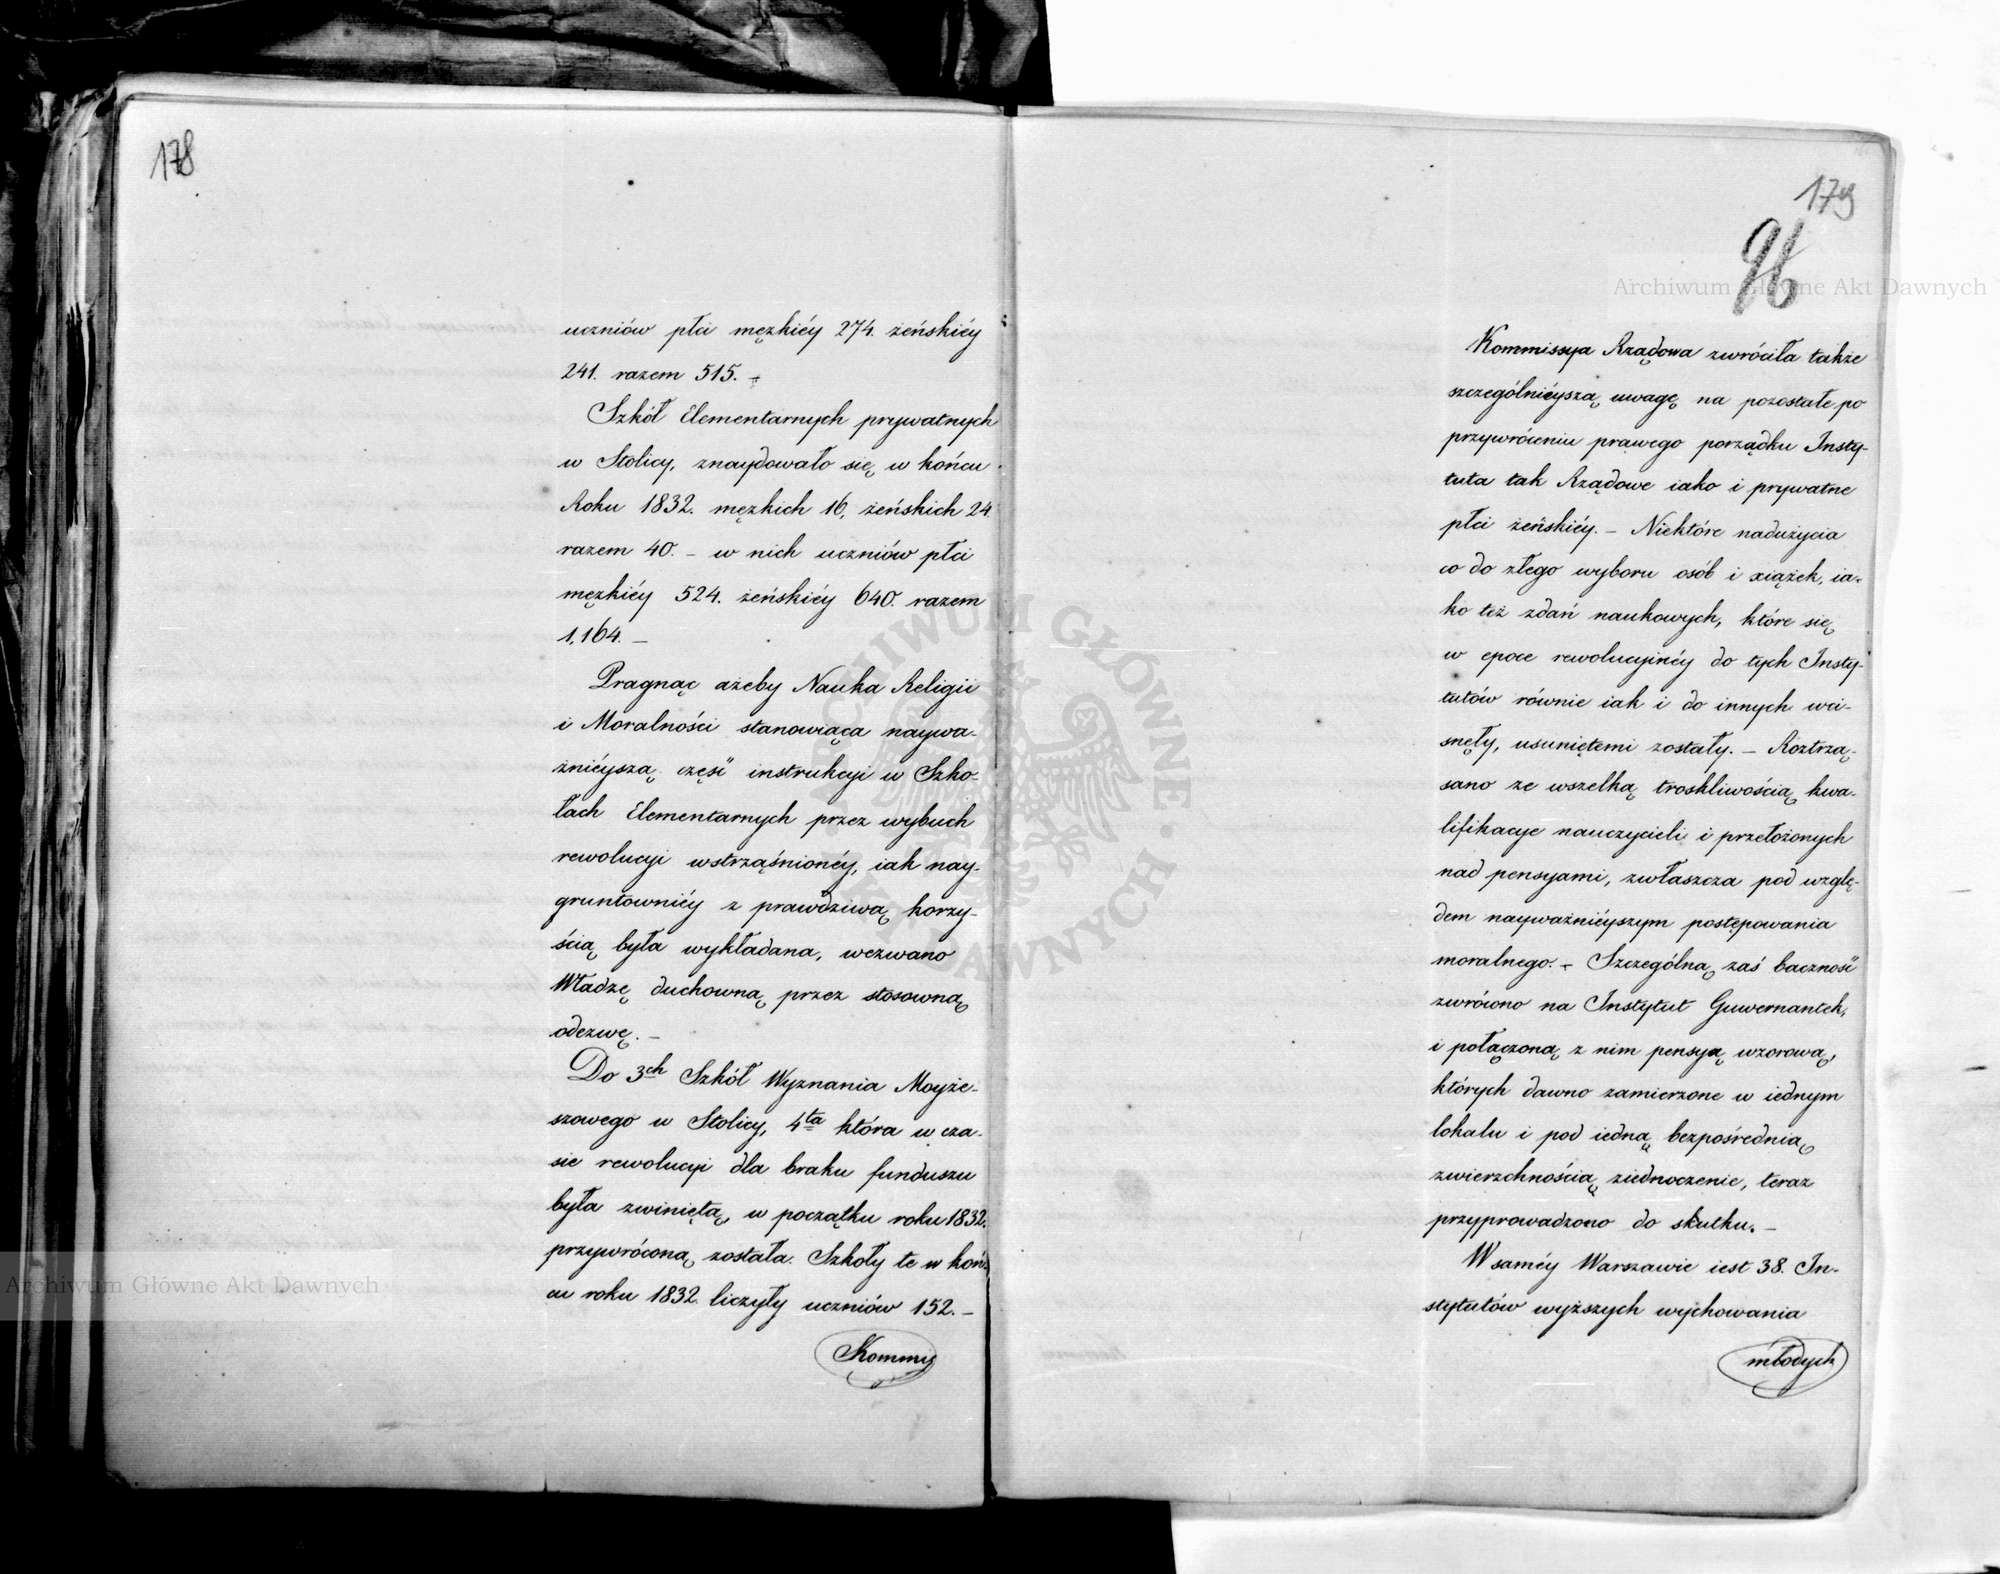 178
uczniów płci męzkiéy 274. żeńskiéy
241. razem 515. –
Szkół Elementarnych prywatnych
w Stolicy, znaydowało się w końcu
Roku 1832. męzkich 16, żeńskich 24.
razem 40. – w nich uczniów płci
męzkiéy 524. żeńskiéy 640. razem
1,164. –
Pragnąc ażeby Nauka Religii
i Moralności stanowiąca naywa-
żniéyszą część instrukcyi w Szko-
łach Elementarnych przez wybuch
rewolucyi wstrząśnionéy, iak nay-
gruntowniéy z prawdziwą korzy-
ścią była wykładana, wezwano
Władzę duchowną przez stosowną
odezwę. –
Do 3ch Szkół Wyznania Moyże-
szowego w Stolicy, 4ta która w cza-
sie rewolucyi dla braku funduszu
była zwiniętą, w początku roku 1832.
przywróconą została. Szkoły te w koń-
cu roku 1832. liczyły uczniów 152. –
Kommis
179
96
Kommissya Rządowa zwróciła także
szczególniéyszą uwagę na pozostałe po
przywróceniu prawego porządku Insty-
tuta tak Rządowe iako i prywatne
płci żeńskiéy. – Niektóre nadużycia
co do złego wyboru osób i xiążek, ia-
ko też zdań naukowych, które się
w epoce rewolucyinéy do tych Insty-
tutów równie iak i do innych wci-
snęły, usuniętemi zostały. – Roztrzą-
sano ze wszelką troskliwością kwa-
lifikacye nauczycieli i przełożonych
nad pensyami, zwłaszcza pod wzglę-
dem nayważniéyszym postępowania
moralnego. – Szczególną zaś baczność
zwrócono na Instytut Guwernantek,
i połączoną z nim pensyą wzorową,
których dawno zamierzone w iednym
lokalu i pod iedną bezpośrednią
zwierzchnością ziednoczenie, teraz
przyprowadzono do skutku. –
W saméy Warszawie iest 38. In-
stytutów wyższych wychowania
młodych
Archiwum Główne Akt Dawnych
Archiwum Główne Akt Dawnych
ARCHIWUM GŁÓWNE AKT DAWNYCH